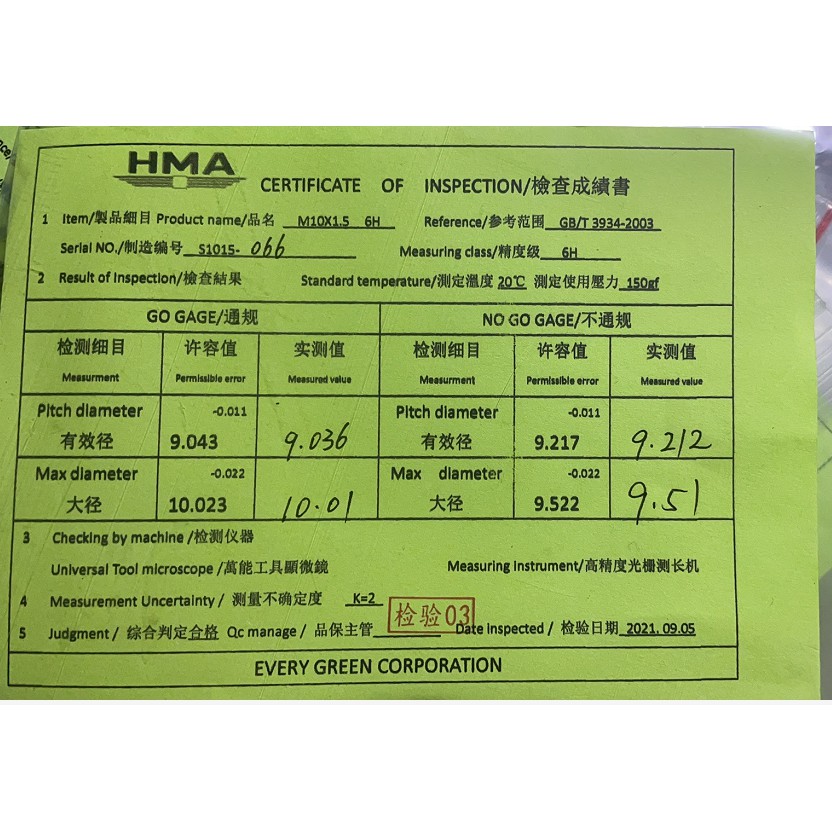 HMA
CERTIFICATE OF INSPECTION/檢查成績書
1 Item/製品細目 Product name/品名 M10X1.5 6H Reference/参考范围 GB/T 3934-2003
Serial NO./制造编号 S1015- 066 Measuring class/精度级 6H
2 Result of Inspection/檢查結果 Standard temperature/測定溫度 20℃ 測定使用壓力 150gf
GO GAGE/通规 NO GO GAGE/不通规
检测细目 许容值 实测值 检测细目 许容值 实测值
Measurment Permissible error Measured value Measurment Permissible error Measured value
Pitch diameter -0.011 Pitch diameter -0.011
有效径 9.043 9.036 有效径 9.217 9.212
Max diameter -0.022 Max diameter -0.022
大径 10.023 10.01 大径 9.522 9.51
3 Checking by machine /检测仪器
Universal Tool microscope /萬能工具顯微鏡 Measuring instrument/高精度光栅测长机
4 Measurement Uncertainty / 測量不确定度 K=2
检验03
5 Judgment / 綜合判定合格 Qc manage / 品保主管 Date inspected / 检验日期 2021. 09.05
EVERY GREEN CORPORATION